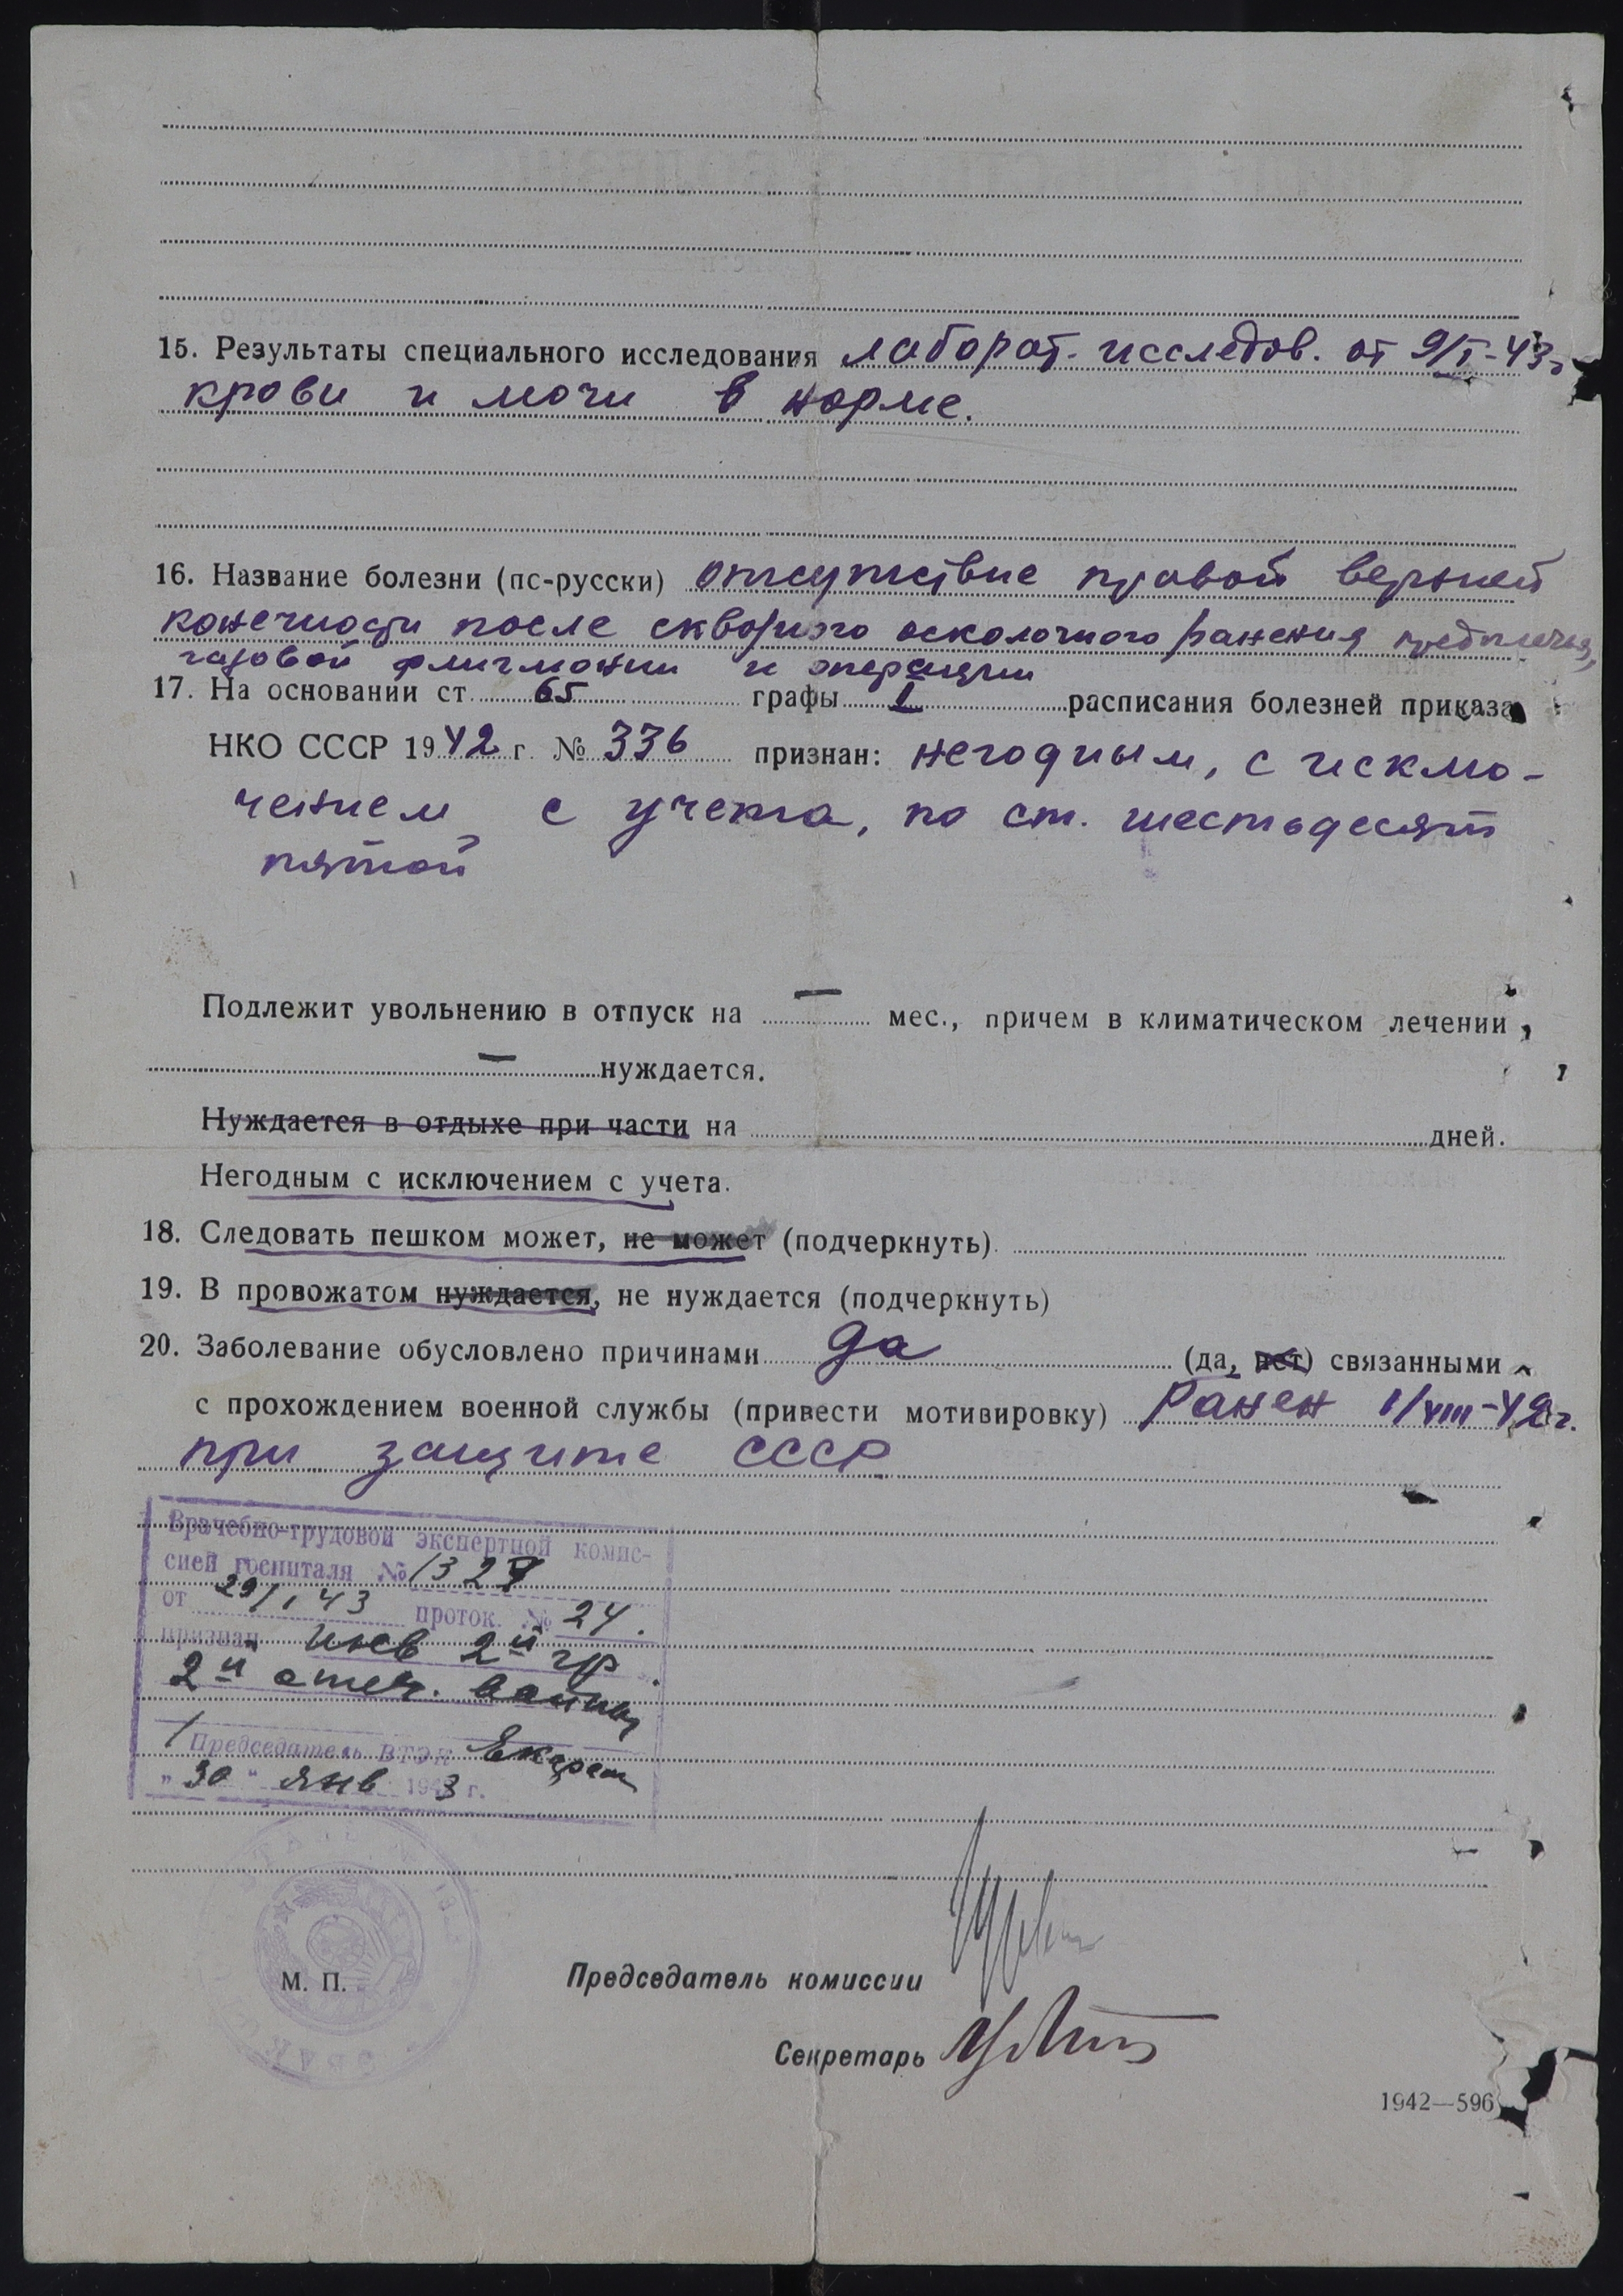 15. Результаты специального исследования лаборат. исследов. от 9/I-43г
крови и мочи в норме.
16. Название болезни (пс-русски) отсутствие правой верхней
конечности после сквозного осколочного ранения предплечья,
газовой флигмонии и операции
17. На основании ст. 65 графы I расписания болезней приказа
НКО СССР 1942 г. № 336 признан: негодным, с исклю-
чением с учета, по ст. шестьдесят
пятой
Подлежит увольнению в отпуск на — мес., причем в климатическом лечении
— нуждается.
Нуждается в отдыхе при части на дней.
Негодным с исключением с учета.
18. Следовать пешком может, не может (подчеркнуть)
19. В провожатом нуждается, не нуждается (подчеркнуть)
20. Заболевание обусловлено причинами да (да, нет) связанными
с прохождением военной службы (привести мотивировку) Ранен 1/VIII-42г.
при защите СССР
Врачебно-трудовой экспертной комис-
сией госпиталя № 1327
от 29/I 43 проток. № 24.
признан инв 2й гр
2й отеч. войны
Председатель ВТЭК
"30" янв 1943 г.
М. П.
Председатель комиссии
Секретарь
1942—596